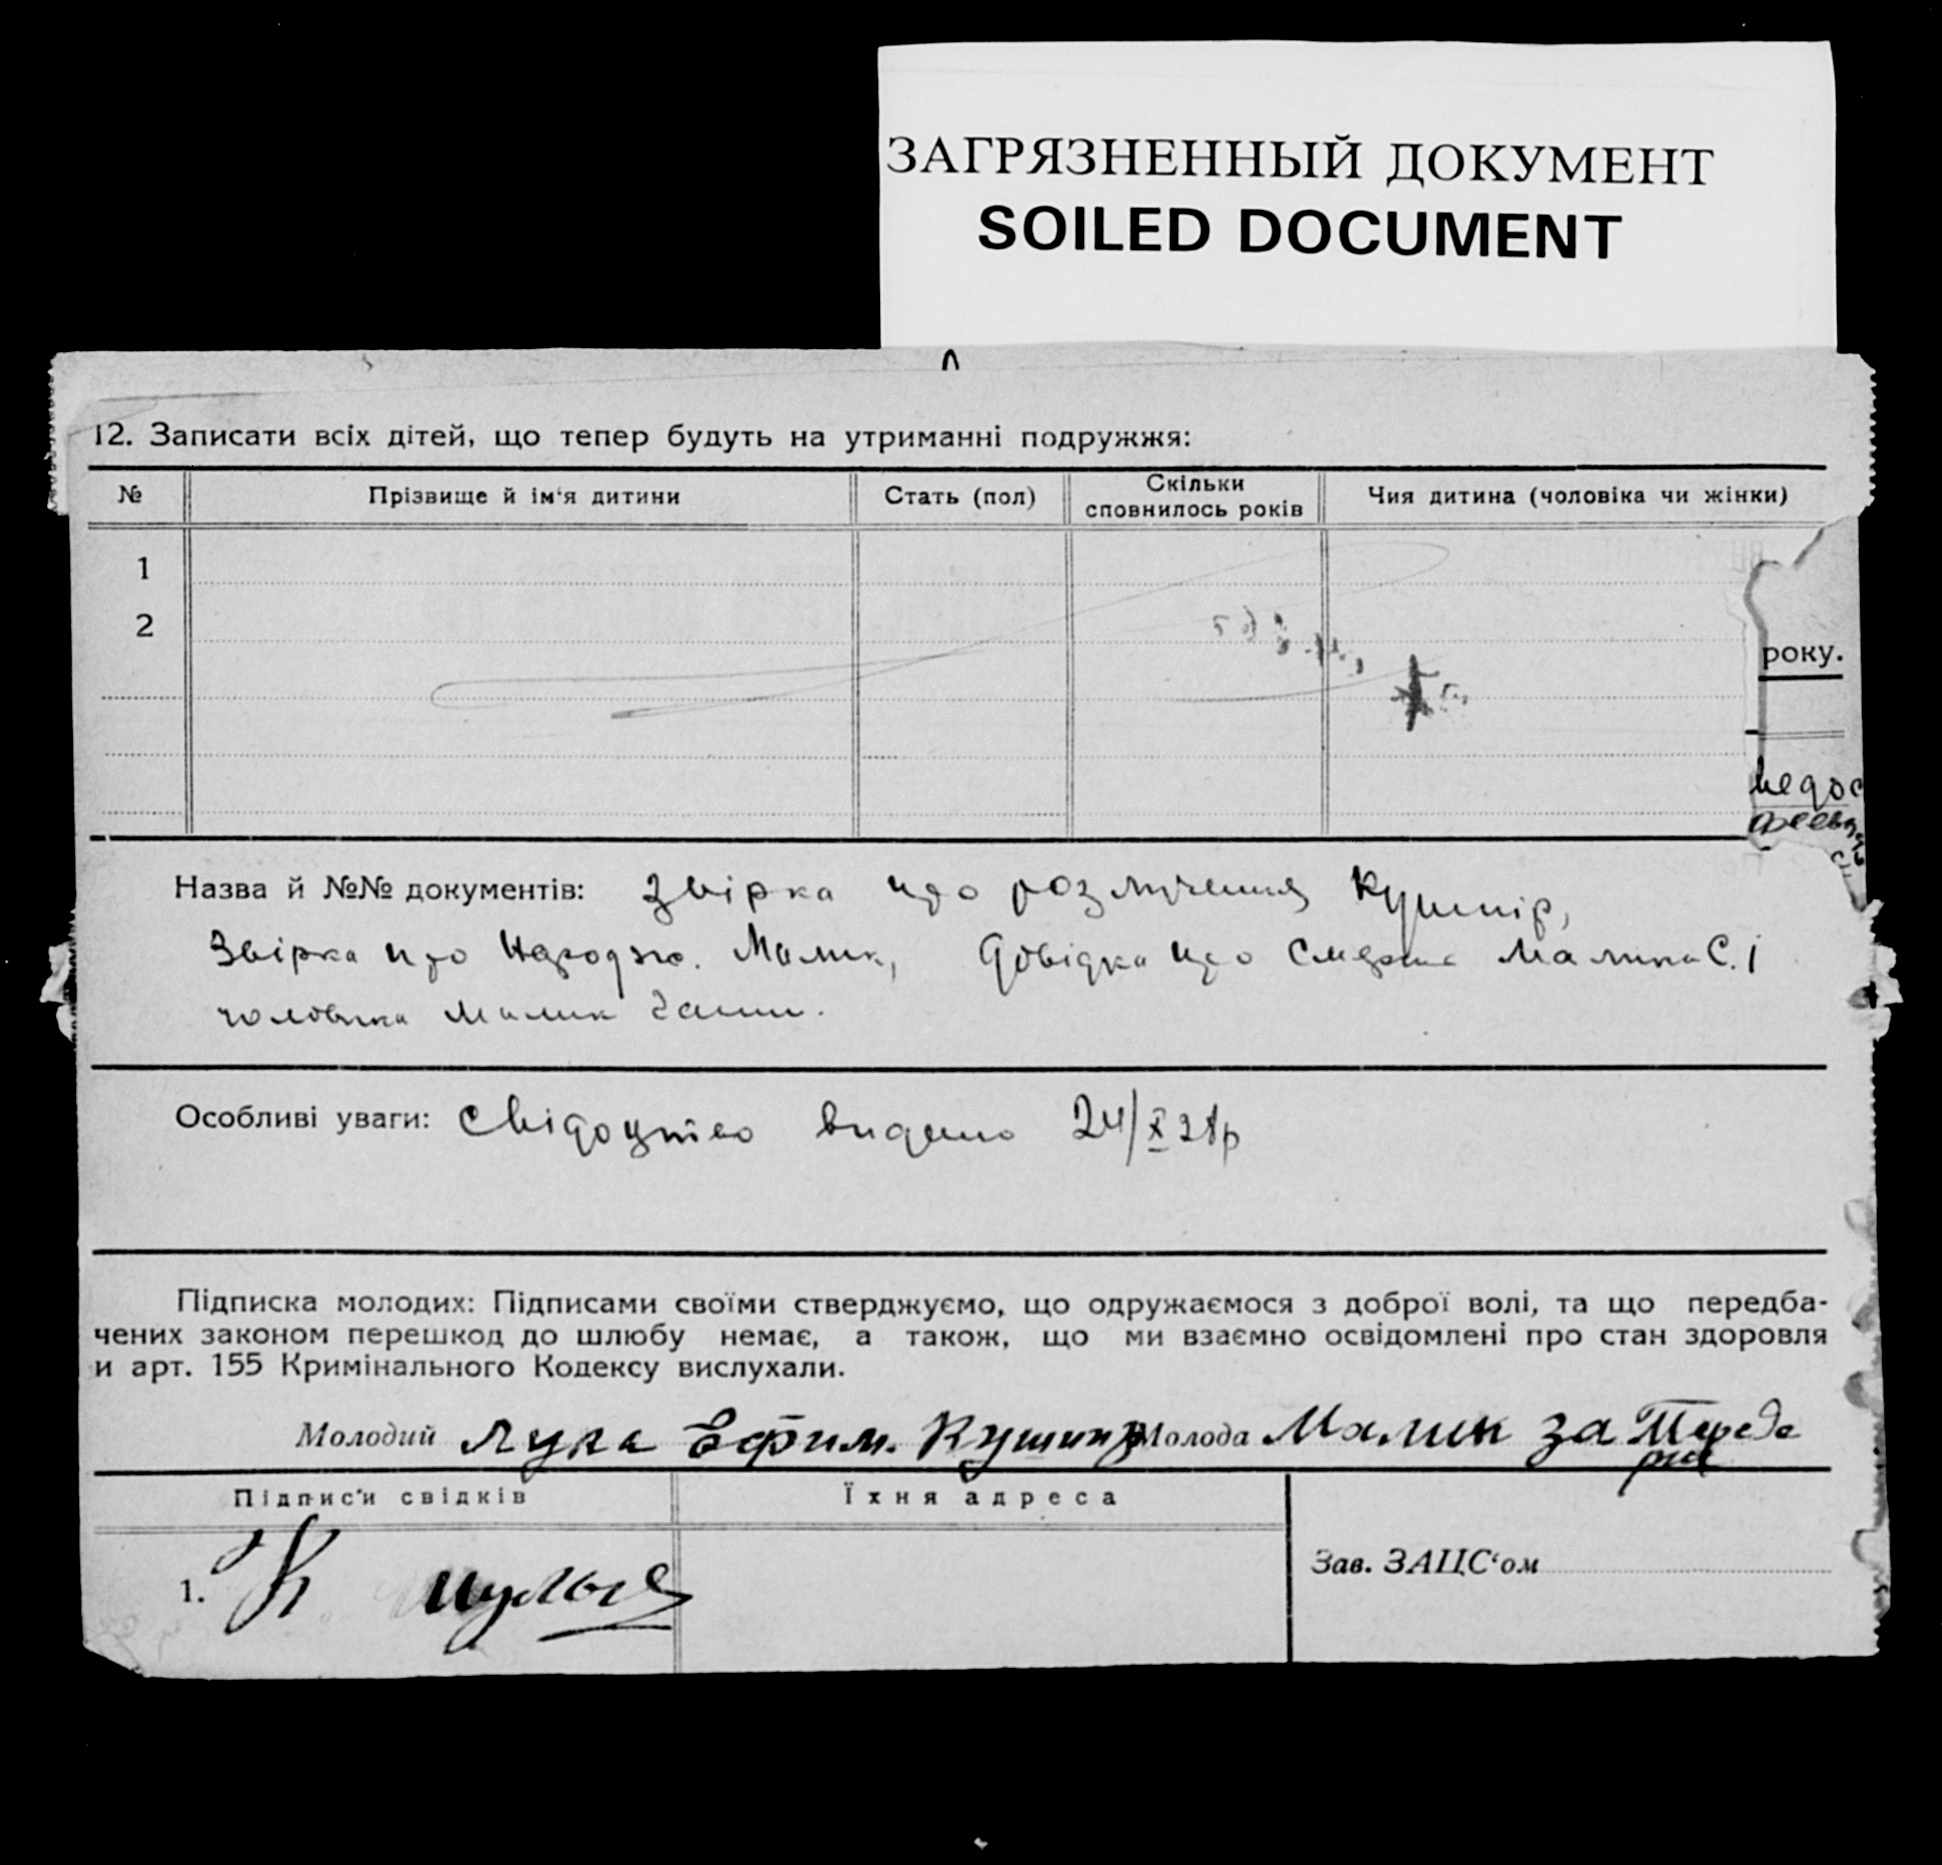 ЗАГРЯЗНЕННЫЙ ДОКУМЕНТ
SOILED DOCUMENT
12. Записати всіх дітей, що тепер будуть на утриманні подружжя:
№ Прізвище й ім‘я дитини Стать (пол) Скільки сповнилось років Чия дитина (чоловіка чи жінки)
1
2
року.
Назва й №№ документів: Звірка про розлучення Кушнір,
Звірка про Народж. Малик, Довідка про смерть Малика С. і
чоловіка Малик
Особливі уваги: Свідоцтво видано 24/X
Підписка молодих: Підписами своїми стверджуємо, що одружаємося з доброї волі, та що передба-
чених законом перешкод до шлюбу немає, а також, що ми взаємно освідомлені про стан здоровля
и арт. 155 Кримінального Кодексу вислухали.
Молодий Лука Ефим. Кушнир Молода Малик за
Підписи свідків Їхня адреса
1.
Зав. ЗАЦС‘ом